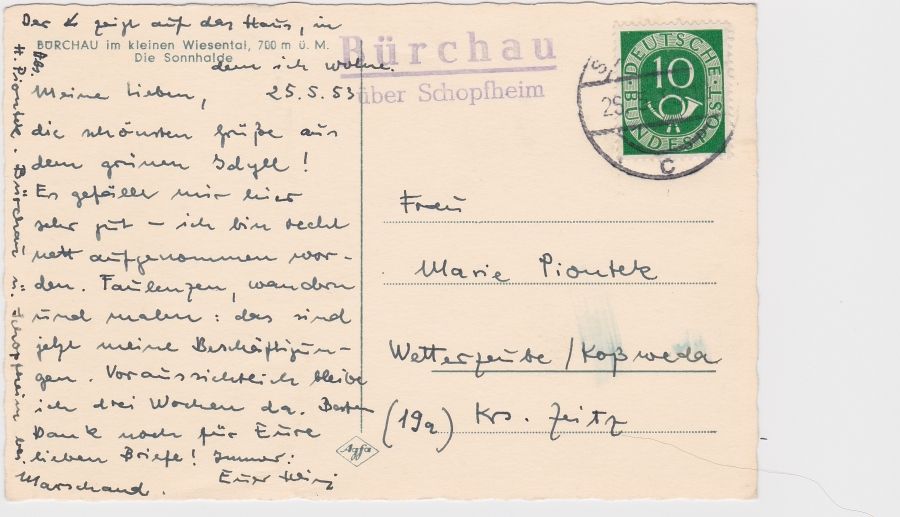 Der ↙ zeigt auf das Haus, in
dem ich wohne.
BÜRCHAU im kleinen Wiesental, 700 m ü. M.
Die Sonnhalde
Meine Lieben, 25.5.53
die schönsten Grüße aus
dem grünen Idyll!
Es gefällt mir hier
sehr gut – ich bin recht
nett aufgenommen wor-
den. Faulenzen, wandern
und malen: das sind
jetzt meine Beschäftigun-
gen. Voraussichtlich bleibe
ich drei Wochen da. Besten
Dank noch für Eure
lieben Briefe! Immer:
Euer Heinz
Abs. H. Piontek. Bürchau ü. Schopfheim bei
Marschand.
Bürchau
über Schopfheim
DEUTSCHE
BUNDESPOST
10
C
Frau
Marie Piontek
Wetterzeube / Koßweda
(19a) Krs. Zeitz
Agfa